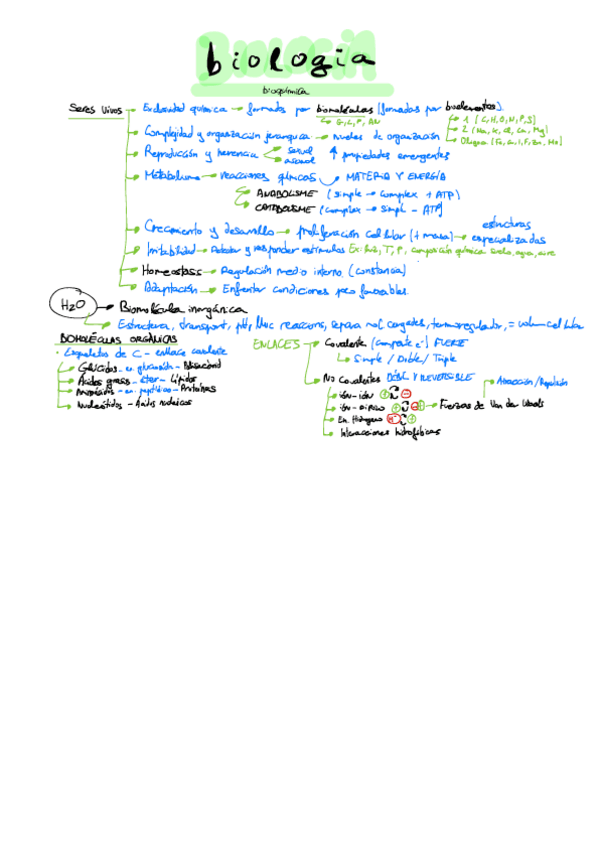 biología
bioquímica
Seres vivos → Exclusividad química → formados por biomoléculas [formadas por bioelementos].
→ G, L, P, AN
→ 1 [C, H, O, N, P, S]
→ 2 [Na, K, Cl, Ca, Mg]
Complejidad y organización jerárquica → niveles de organización
Reproducción y herencia sexual
asexual
↑ propiedades emergentes
Metabolismo → reacciones químicas MATERIA Y ENERGÍA
ANABOLISME (simple → complex + ATP)
CATABOLISME (complex → simpl - ATP)
Crecimiento y desarrollo → proliferación celular [+ masa] → estructuras especializadas
Irritabilidad → Detectar y responder estímulos Ex: luz, T, P, composición química suelo, agua, aire
Homeostasis → Regulación medio interno (constancia)
Adaptación → Enfrentar condiciones poco favorables.
H2O → Biomolécula inorgánica
→ Estructura, transport, pH, reaccions, separa mol. cargades, termorregulador, = volum cel·lular
BIOMOLÉCULAS ORGÁNICAS
· Esqueletos de C - enllaç covalente
Glúcidos - en. glucosídic -
Ácidos grasos - éster - Lípidos
Aminoácids - en. peptídico - Proteínas
Nucleótidos - Àcids nucleicos
ENLACES → Covalente (comparte e-) FUERTE
→ Simple / Doble / Triple
→ No Covalentes DÉBIL Y REVERSIBLE
ión-ión + -
ión-dipolo + - + → Fuerzas de Van der Waals
Atracción / Repulsión
En. Hidrógeno H- +
Interacciones hidrofóbicas